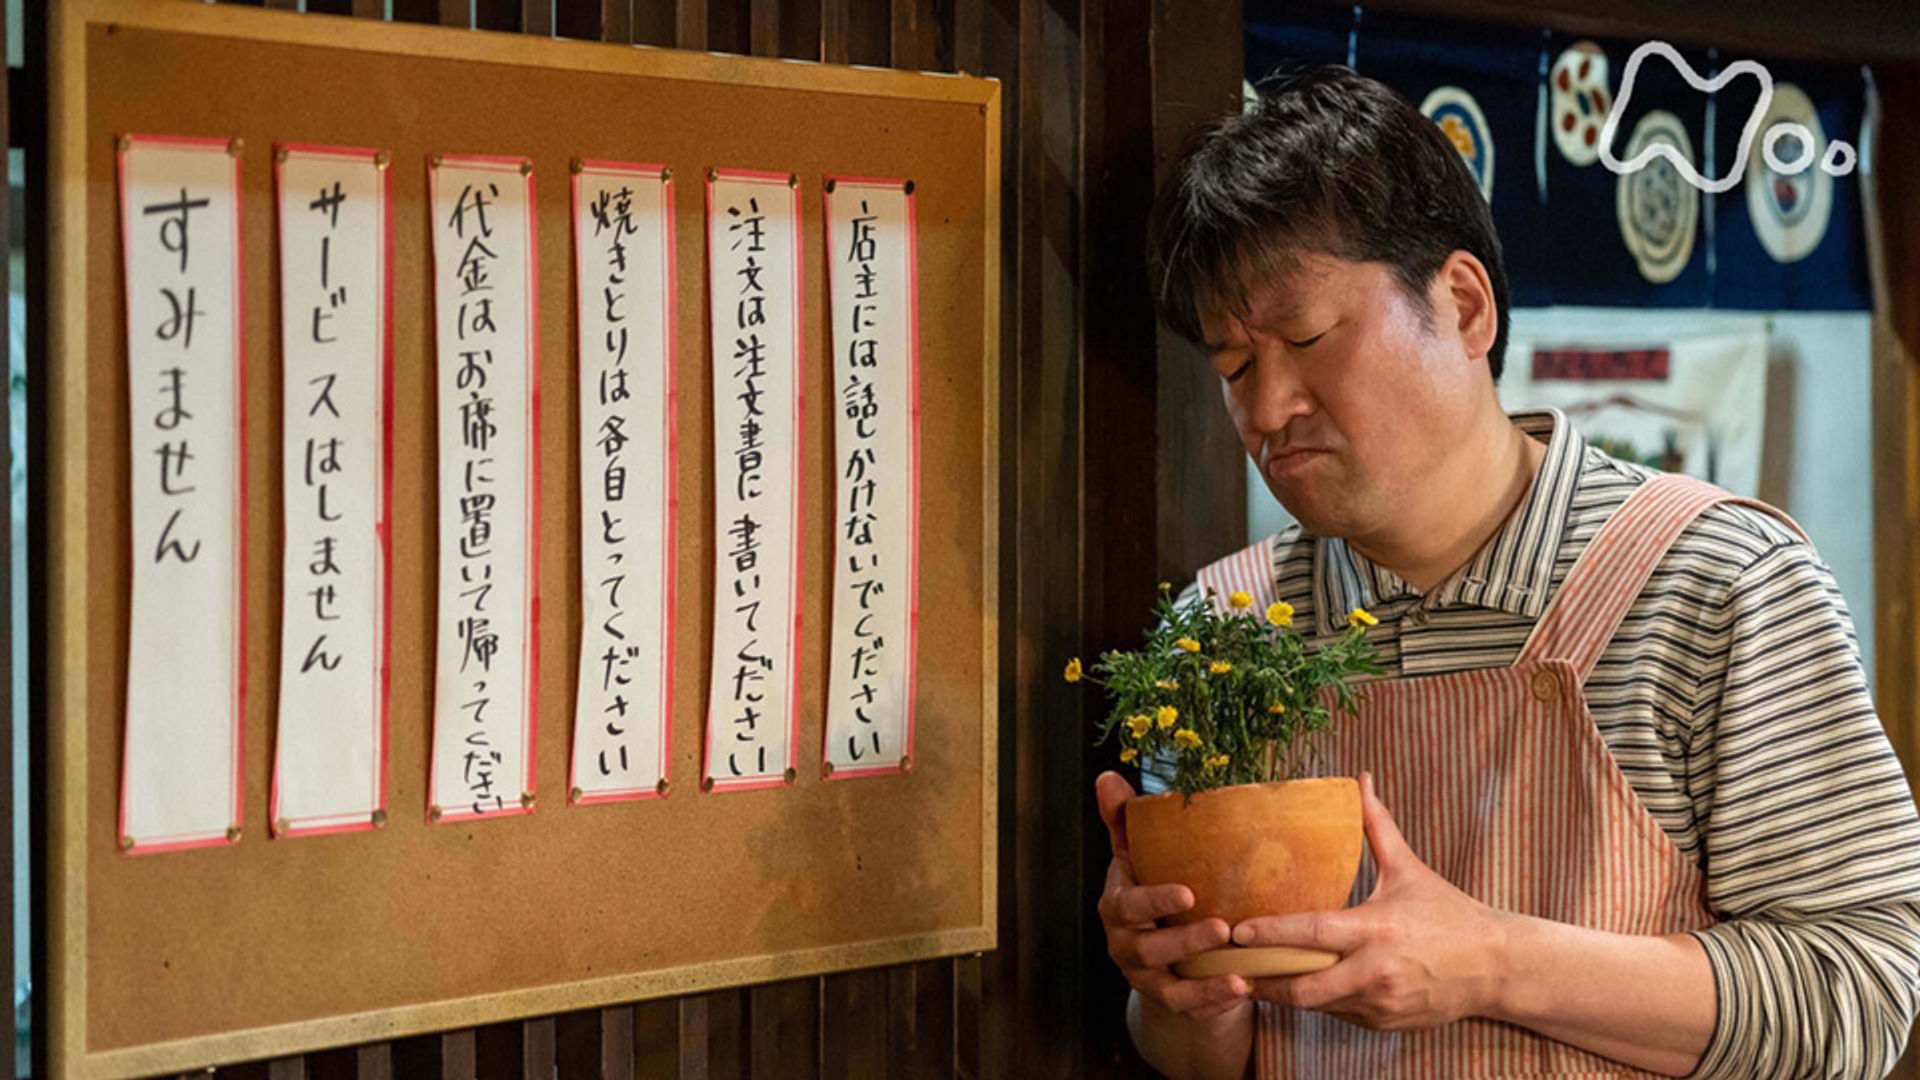 店主には話しかけないでください
注文は注文書に書いてください
焼きとりは各自とってください
代金はお席に置いて帰ってください
サービスはしません
すみません